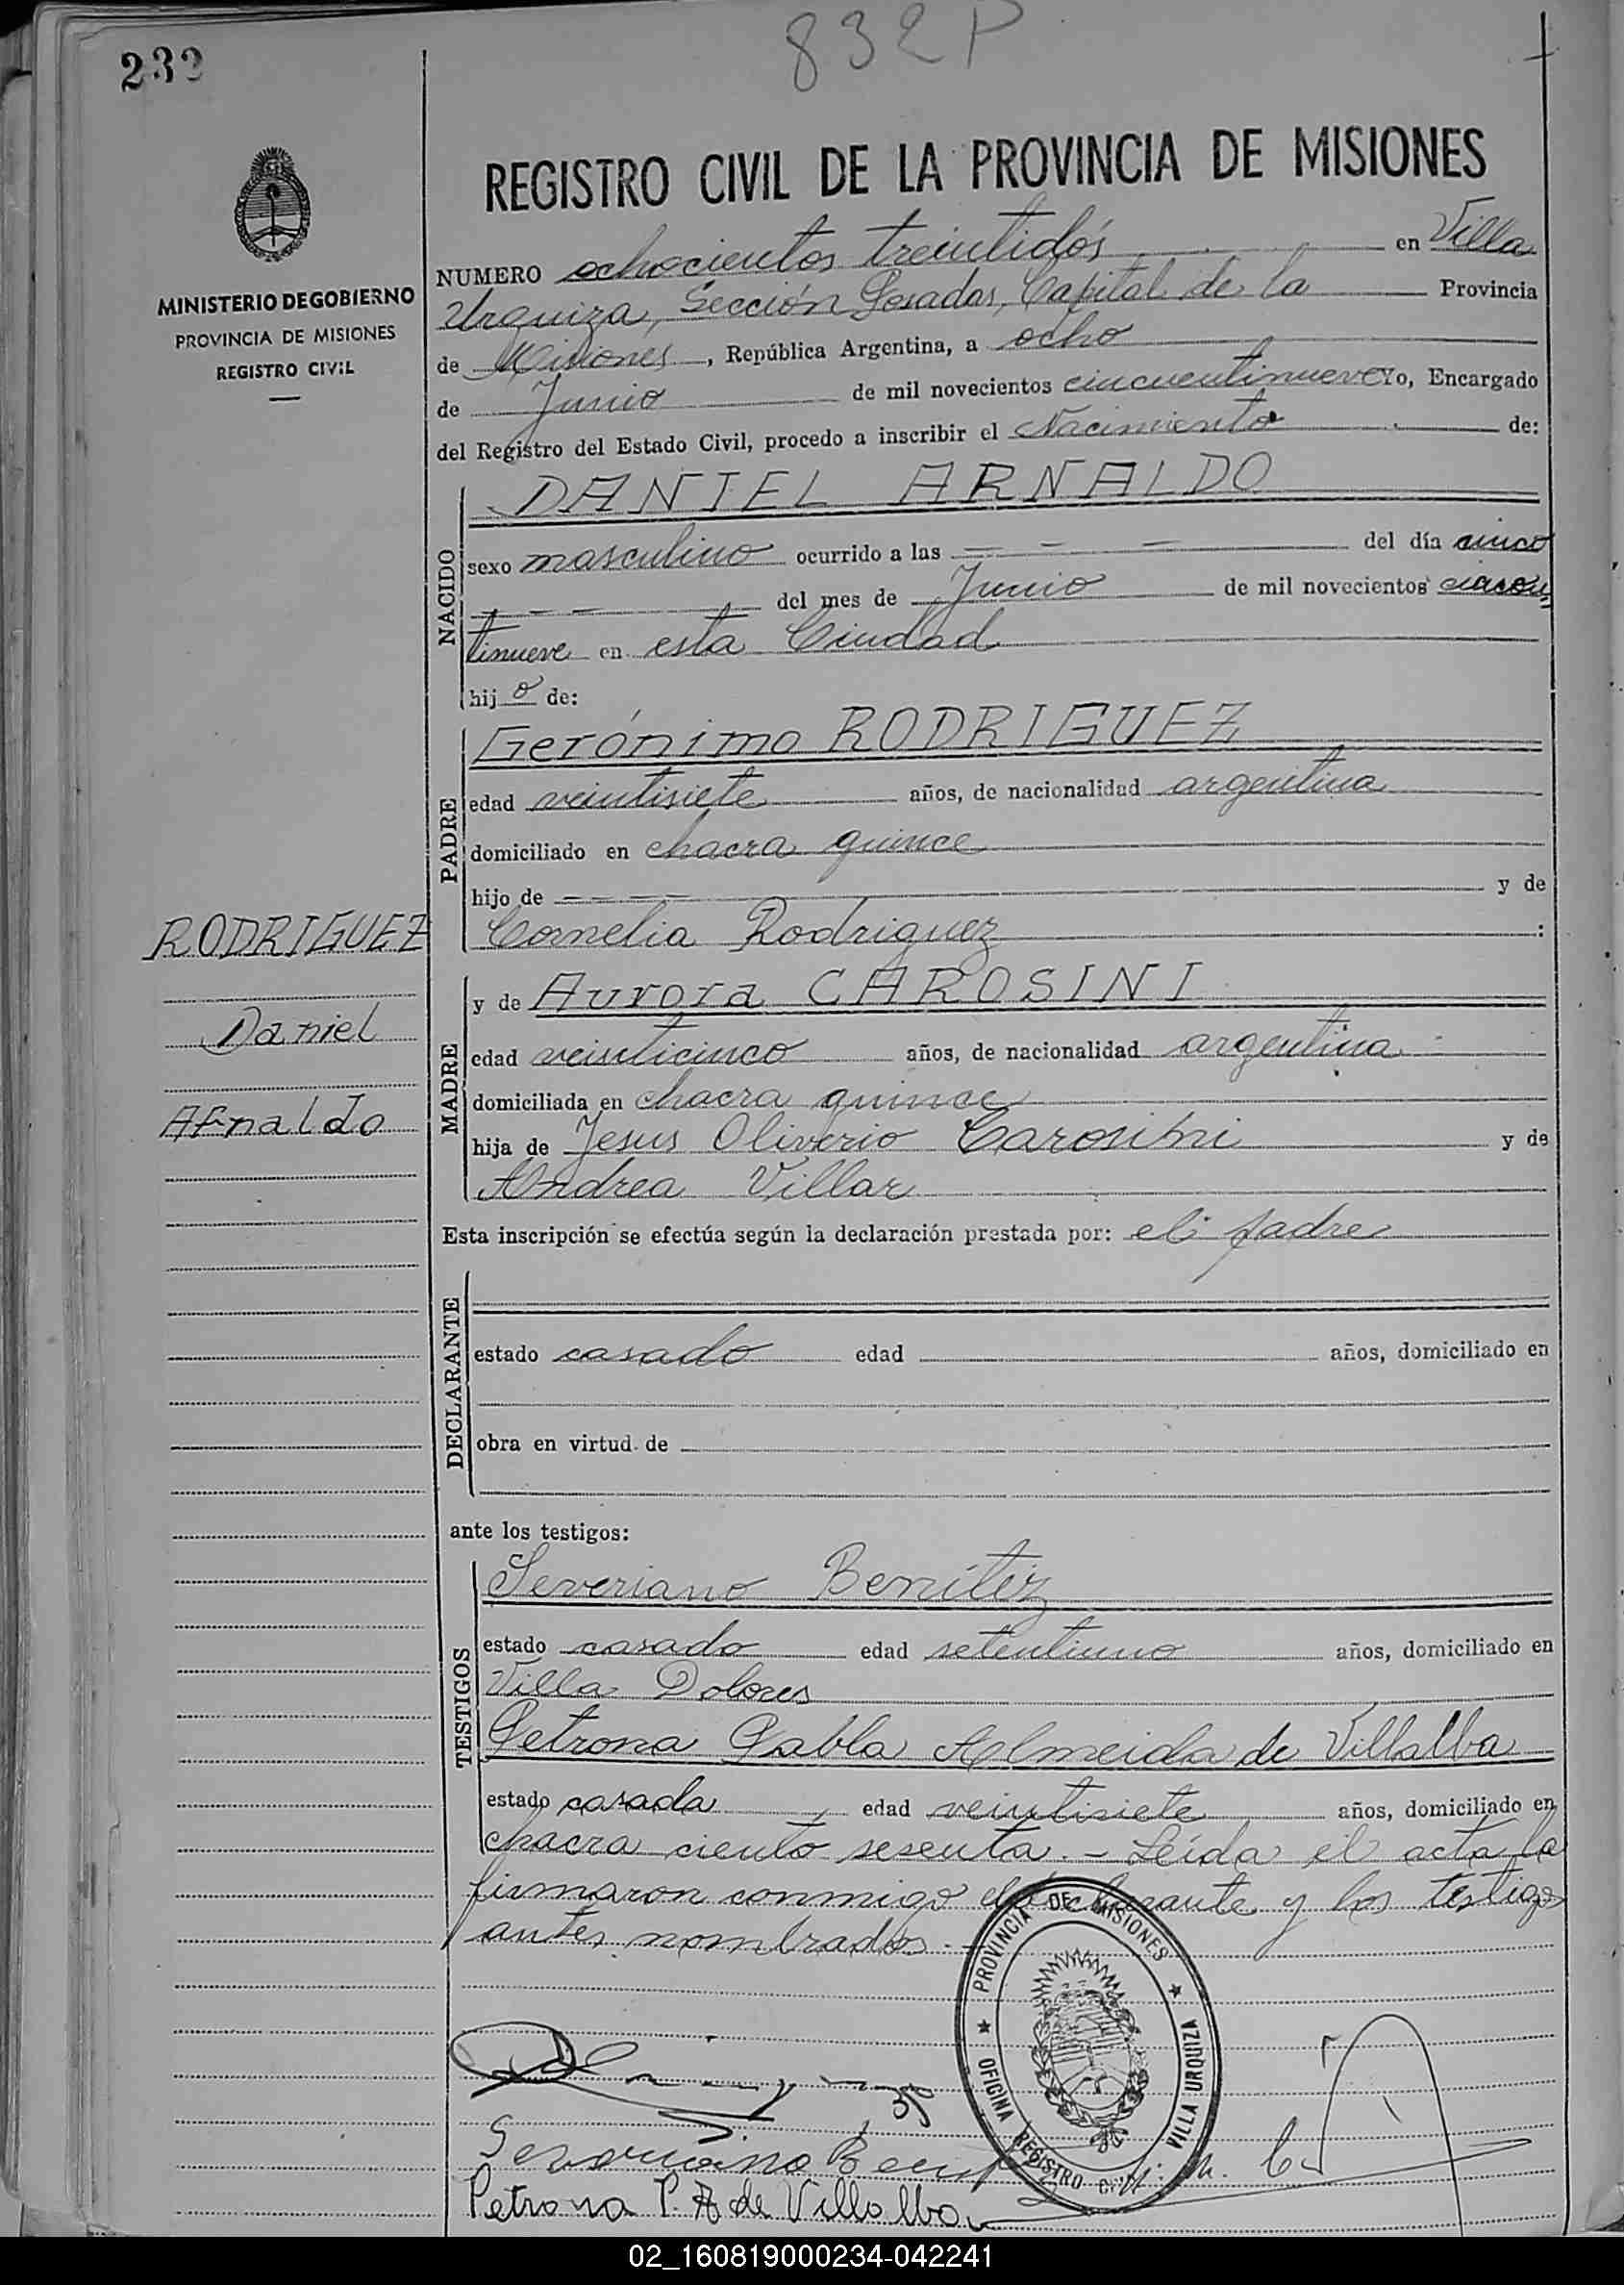 832 P
232
REGISTRO CIVIL DE LA PROVINCIA DE MISIONES
MINISTERIO DE GOBIERNO
PROVINCIA DE MISIONES
REGISTRO CIVIL
NUMERO ochocientos treintidós en Villa
Urquiza, Sección Posadas, Capital de la Provincia
de Misiones, República Argentina, a ocho
de Junio de mil novecientos cincuentinueve Yo, Encargado
del Registro del Estado Civil, procedo a inscribir el Nacimiento de:
NACIDO
DANIEL ARNALDO
sexo masculino ocurrido a las — — — del día cinco
— — — del mes de Junio de mil novecientos cincuen
tinueve en esta Ciudad
hijo de:
PADRE
Gerónimo RODRIGUEZ
edad veintisiete años, de nacionalidad argentina
domiciliado en chacra quince
hijo de — — — — y de
Cornelia Rodriguez :
RODRIGUEZ
Daniel
Arnaldo
MADRE
y de Aurora CAROSINI
edad veinticinco años, de nacionalidad argentina
domiciliada en chacra quince
hija de Jesus Oliverio Carosini y de
Andrea Villar
Esta inscripción se efectúa según la declaración prestada por: el padre
DECLARANTE
estado casado edad años, domiciliado en
obra en virtud de
ante los testigos:
TESTIGOS
Severiano Benítez
estado casado edad setentiuno años, domiciliado en
Villa Dolores
Petrona Pabla Almeida de Villalba
estado casada edad veintisiete años, domiciliado en
chacra ciento sesenta. — Leída el acta la
firmaron conmigo el declarante y los testigos
antes nombrados. —
PROVINCIA DE MISIONES
OFICINA REGISTRO CIVIL VILLA URQUIZA
Petrona P. A de Villalba
02_160819000234-042241